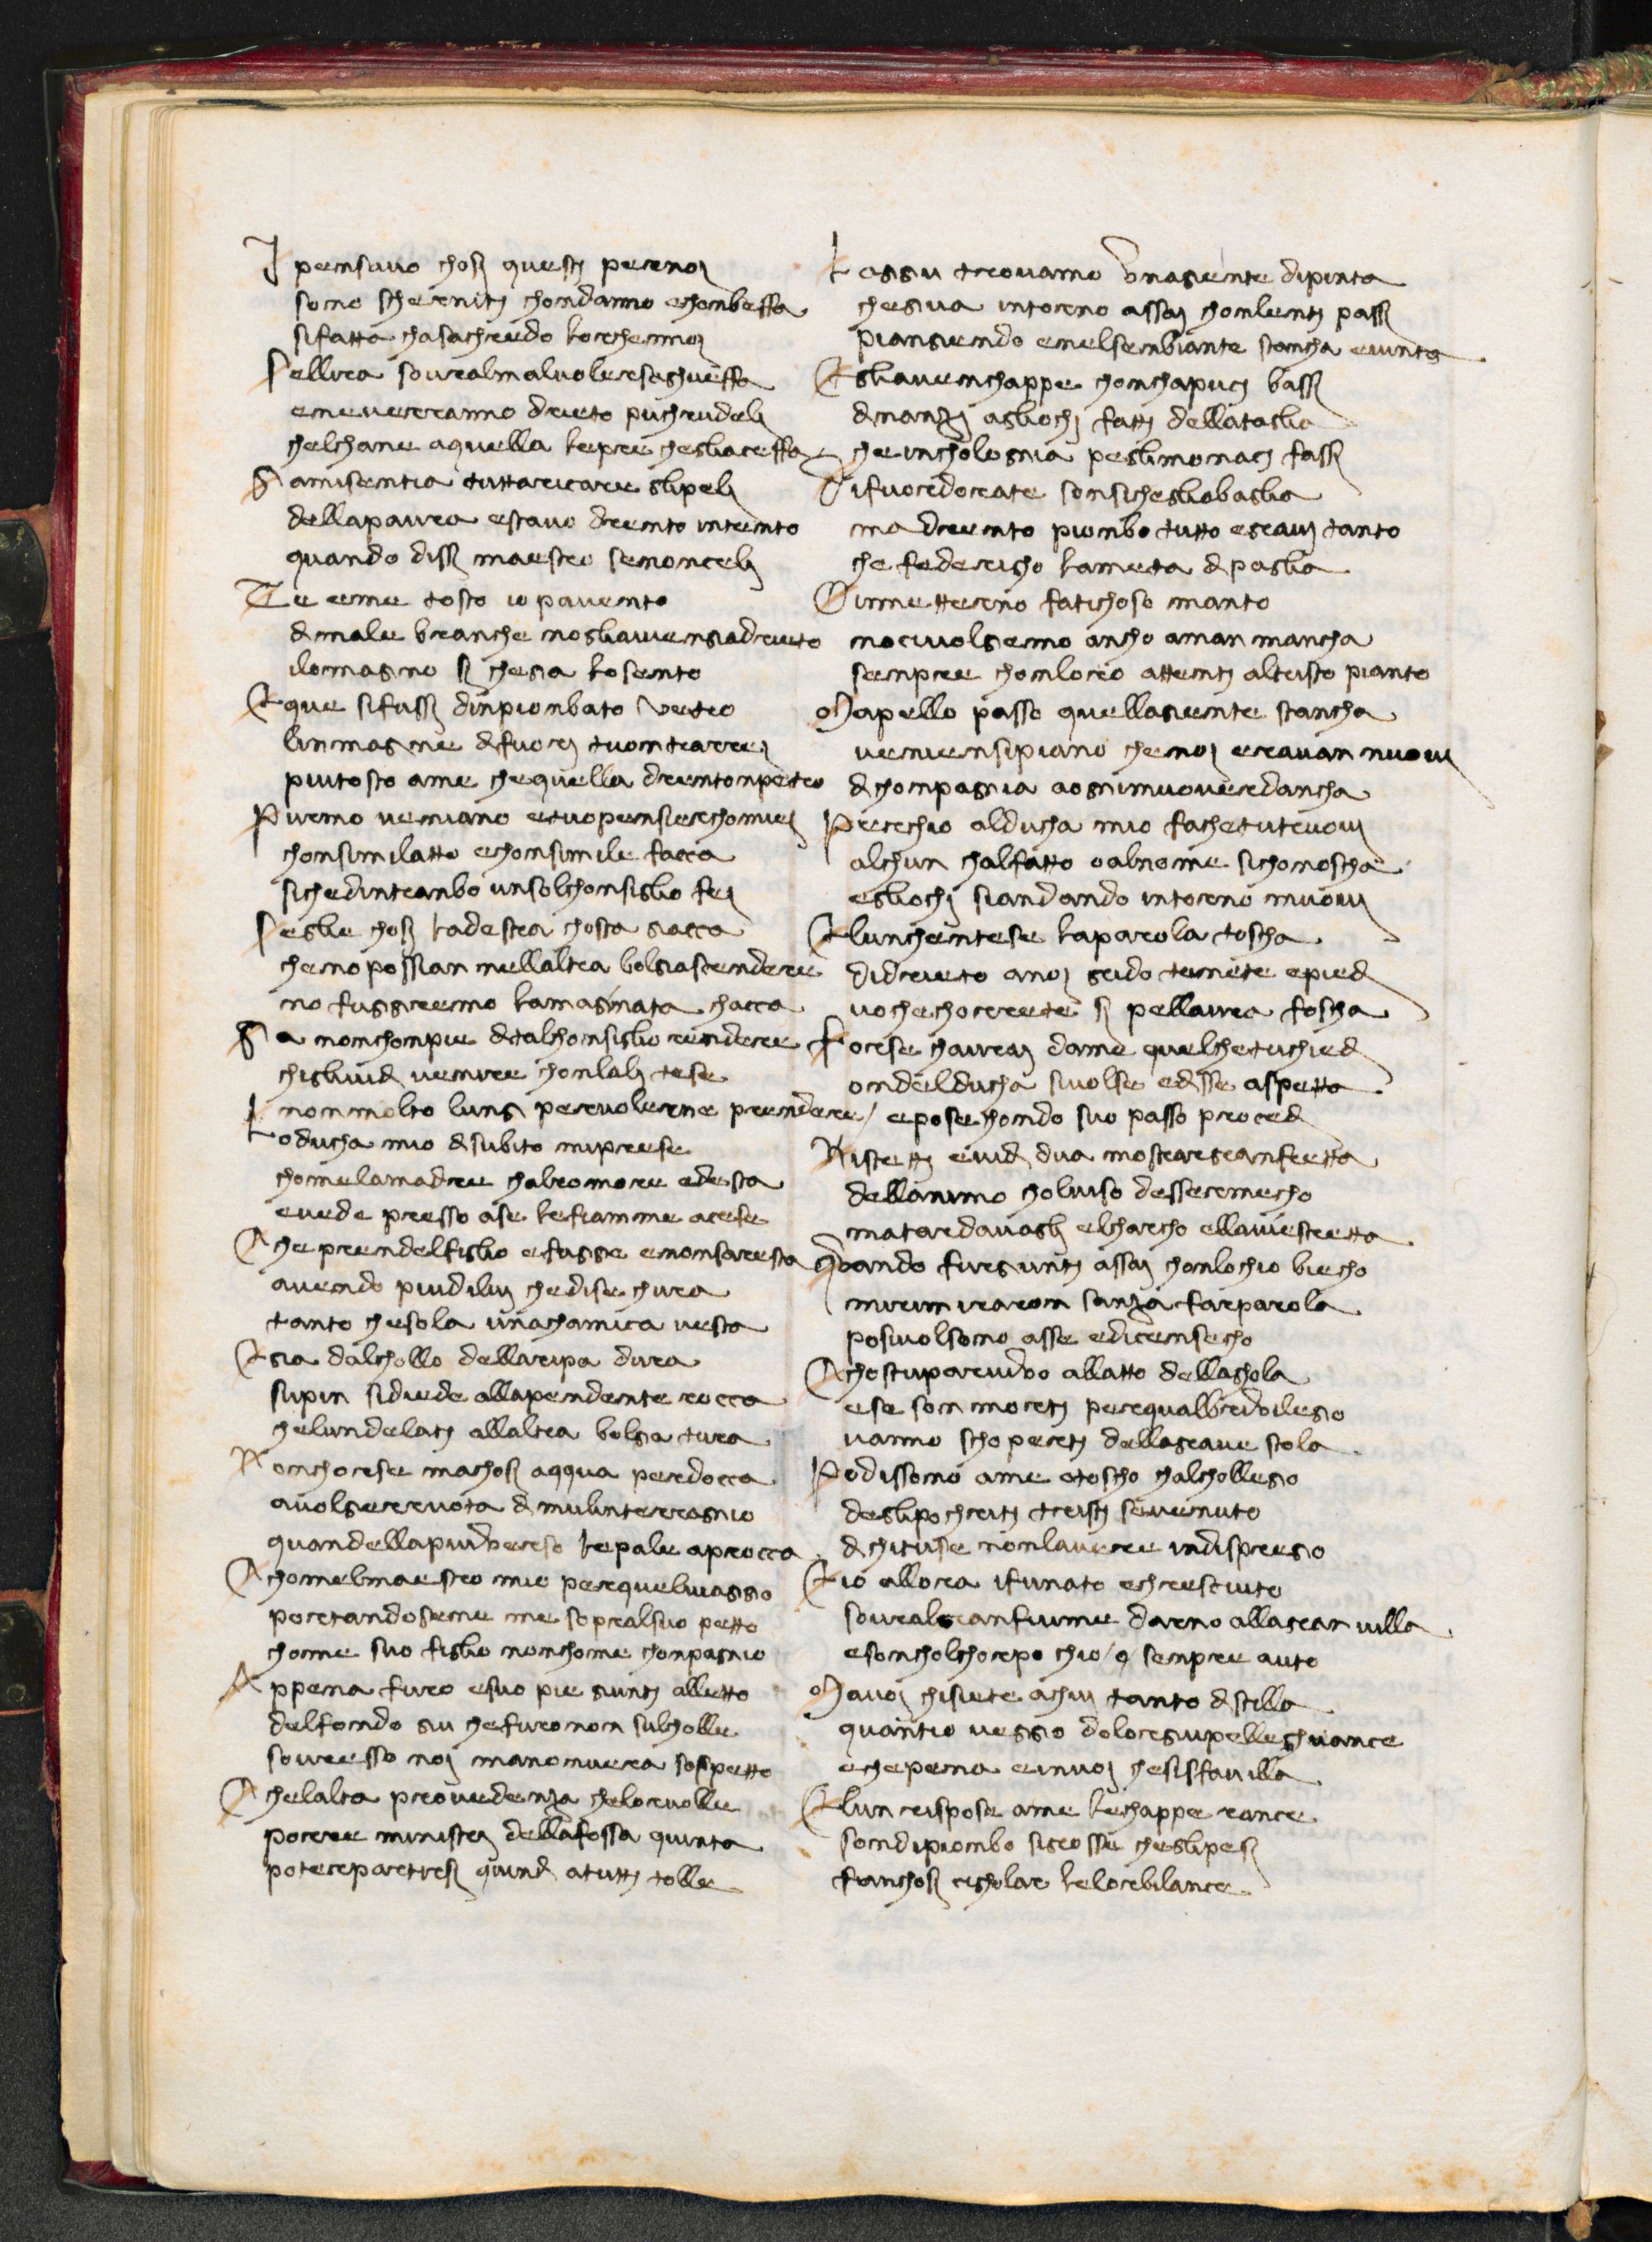 I pensavo chosi questi pernoi
sono scherniti chondanno echonbeffa
sifatta chasachredo lorchennoi
Sellira sovralmalvolersaghueffa
eneverranno drieto piuchrudeli
chelchane aquella lepre chegliaceffa
Gamisentia tuttaricciare glipeli
dellapaura estavo drento intento
quando dissi maestro senonceli
Te eme tosto io pavento
dimale branche nogliavengiadrieto
ilomagno si chegia losento
Eque sifussi dinpionbato vetro
linmagine difuori tuontrarrei
piutosto ame chequella drentonpetro
Purmo veniano etuopensierchomiei
chonsimilatto echonsimile faccia
sichedintranbo unsolchonsiglio fei
Seglie chosi ladestra chosta giaccia
chenopossian nellaltra bolgiascendere
no fuggiremo lamaginata chaccia
Gia nonchonpie ditalchonsiglio rendere
chiglividi venire chonlali tese
nonmolto lungi pervolerne prendere
Loducha mio disubito miprese
chomelamadre chalromore edesta
evede presso ase lefiamme acese
Cheprendelfiglio efugge enonsaresta
avendo piudilui chedise chura
tanto chesola unachamicia vesta
Egia dalchollo dellaripa dura
supin sidiede allapendente roccia
chelundelati allaltra bolgia tura
Nonchorse machosi aqqua perdoccia
avolgerruota dimulinterragnio
quandellapiuverso lepale aproccia
Chomelmaestro mio perquelvivaggio
portandosene me sopralsuo petto
chome suo figlio nonchome chonpagnio
Appena furo esuo pie giunti alletto
delfondo giu chefuronon sulcholle
sovresso noi manonviera sospetto
Chelalta provedenza chelorvolle
porre ministri dellafossa quinta
poterpartirsi quindi atutti tolle
Laggiu trovamo unagiente dipinta
chegiva intorno assai chonlenti passi
piangiendo enelsenbiante stancha evinta
Egliavenchappe chonchapucci bassi
dinanzi agliochi fatti dellataglia
che incholognia pegli monaci fassi
Difuordorate sonsichegliabaglia
ma drento pionbo tutto egravi tanto
che federicho lametta dipaglia
O inetterno fatichoso manto
nocivolgiemo ancho aman mancha
senpre chonloro attenti altristo pianto
Mapello passo quellagiente stancha
veniensipiano chenoi eravan nuovi
dichonpagnia aognimuoverdancha
Perchio alducha mio fachetutruovi
alchun chalfatto oalnome sichonoscha
egliochi siandando intorno muovi
Elunchentese laparola toscha
didrieto anoi grido tenete epiedi
voichechorrete si pellauria foscha
Forse chavrai dame quelchetuchiedi
ondelducha sivolse edisse aspetta
epoisechondo suo passo procedi
Ristetti evidi dua mostrargranfretta
dellanimo cholviso dessermecho
matardavagli elcharcho ellaviestretta
Quando furgiunti assai chonlochio biecho
mirimiraron sanza farparola
poisivolsono asse edicensecho
Chostuiparvivo allatto dellaghola
ese son morti perqualbrivilegio
vanno schoperti dellagrave stola
Podissono ame otoscho chalchollegio
deglipochriti tristi sevenuto
dichituse nonlavere indispregio
Eio alloro ifunato echresciuto
sovralgranfiume darno allagran villa
esoncholchorpo chio o senpre auto
Mavoi chisiete achui tanto distilla
quantio veggio dolorgiupelleghuance
echepena einvoi chesisfavilla
Elun rispose ame lechappe rance
sondipionbo sigrosse cheglipesi
fanchosi cigholar lelorbilance